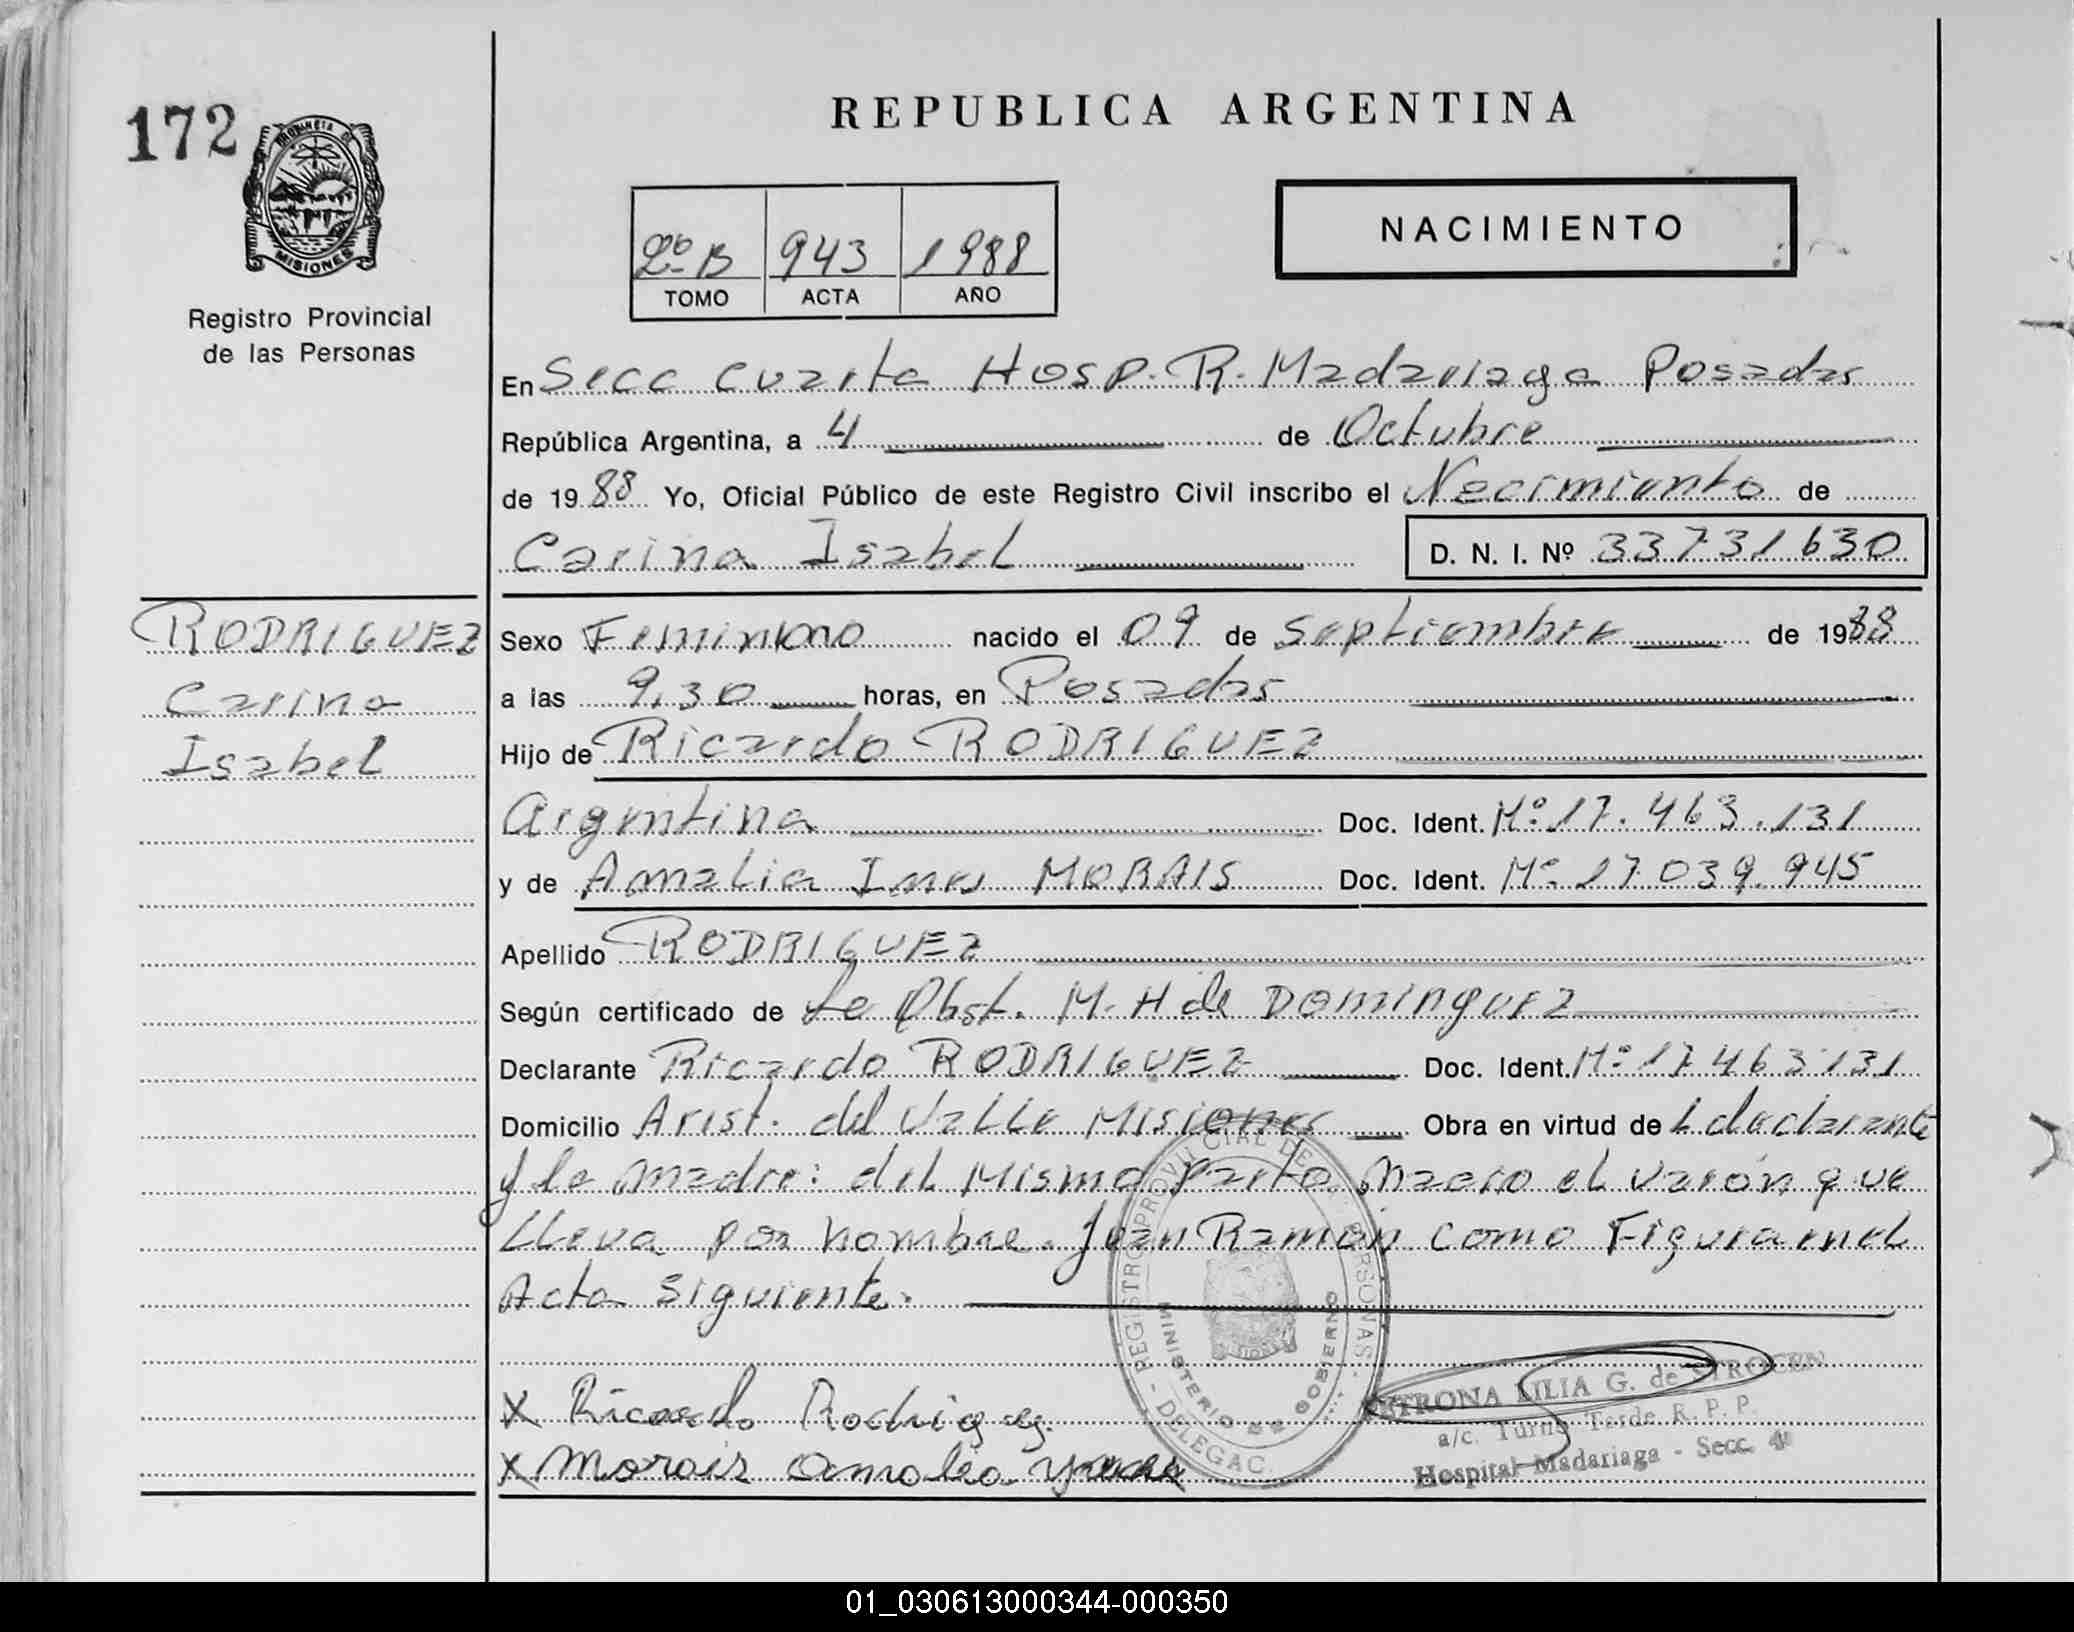 172
REPUBLICA ARGENTINA
PROVINCIA DE
MISIONES
Registro Provincial
de las Personas
2º B 943 1988
TOMO ACTA AÑO
NACIMIENTO
En Secc cuarta Hosp. R. Madariaga Posadas
República Argentina, a 4 de Octubre
de 1988 Yo, Oficial Público de este Registro Civil inscribo el Nacimiento de
Carina Isabel D. N. I. Nº 33731630
RODRIGUEZ
Carina
Isabel
Sexo Feminino nacido el 09 de Septiembre de 1988
a las 9,30 horas, en Posadas
Hijo de Ricardo RODRIGUEZ
Argentina Doc. Ident. Mº 17.463.131
y de Amalia Ines MORAIS Doc. Ident. Mº 17.039.945
Apellido RODRIGUEZ
Según certificado de La Obst. M. H de DOMINGUEZ
Declarante Ricardo RODRIGUEZ Doc. Ident. Mº 17463131
Domicilio Arist. del Valle Misiones Obra en virtud de L declarante
y la madre: del Mismo parto nacio el varón que
LLeva por nombre Juan Ramón como Figura en el
Acta siguiente.
REGISTRO PROVINCIAL DE PERSONAS - DELEGAC.
MINISTERIO DE GOBIERNO
X Ricardo Rodriguez
X Morais Amalia Ynes
PETRONA LILIA G. de STROCEN
a/c. Turno Tarde R. P. P.
Hospital Madariaga - Secc. 4ª
01_030613000344-000350